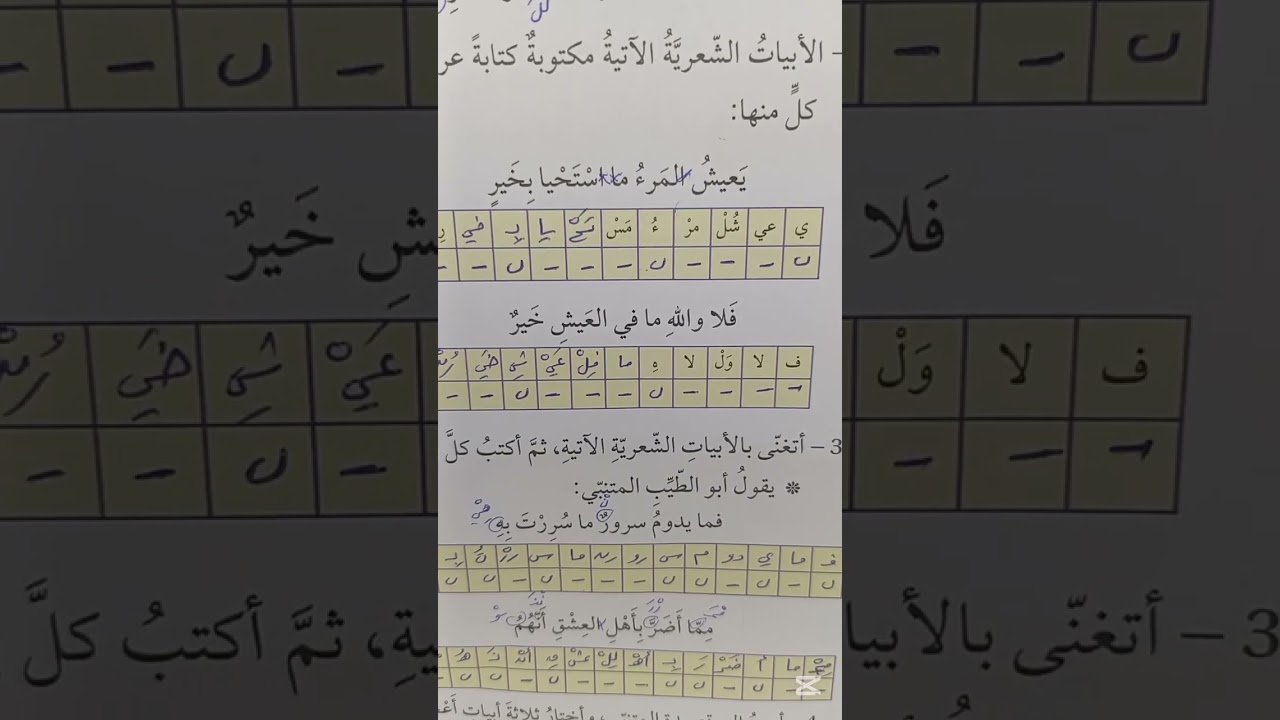 – الأبياتُ الشّعريَّةُ الآتيةُ مكتوبةٌ كتابةً عر
كلٍّ منها:
يَعيشُ المَرءُ ما اسْتَحْيا بِخَيرٍ
ي عي شُلْ مرْ ءُ مَسْ تَحْ يا بِـ خَيْ رِ
ں – – – ں – – – ں – –
فَلا واللهِ ما في العَيشِ خَيرٌ
فـ لا وَلْ لا هِ ما فِلْ عَيْ شِ خَيْ رُنْ
– – – – ں – – – ں – –
3 – أتغنّى بالأبياتِ الشّعريّةِ الآتيةِ، ثمَّ أكتبُ كلَّ
* يقولُ أبو الطّيِّبِ المتنبّي:
فما يدومُ سرورٌ ما سُرِرْتَ بِهِ
ف ما ي دو م س رو رن ما س رِرْ تَ بِـ
ں – ں – ں ں – – – ں – ں ں
مِمَّا أَضَرَّ بِأَهْلِ العِشْقِ أَنَّهُمُ
مِمْ ما أ ضَرْ رَ بِـ أهْ لِلْ عشْ قِ أنْ نَ هُ
– – ں – ں ں – – – ں – ں ں